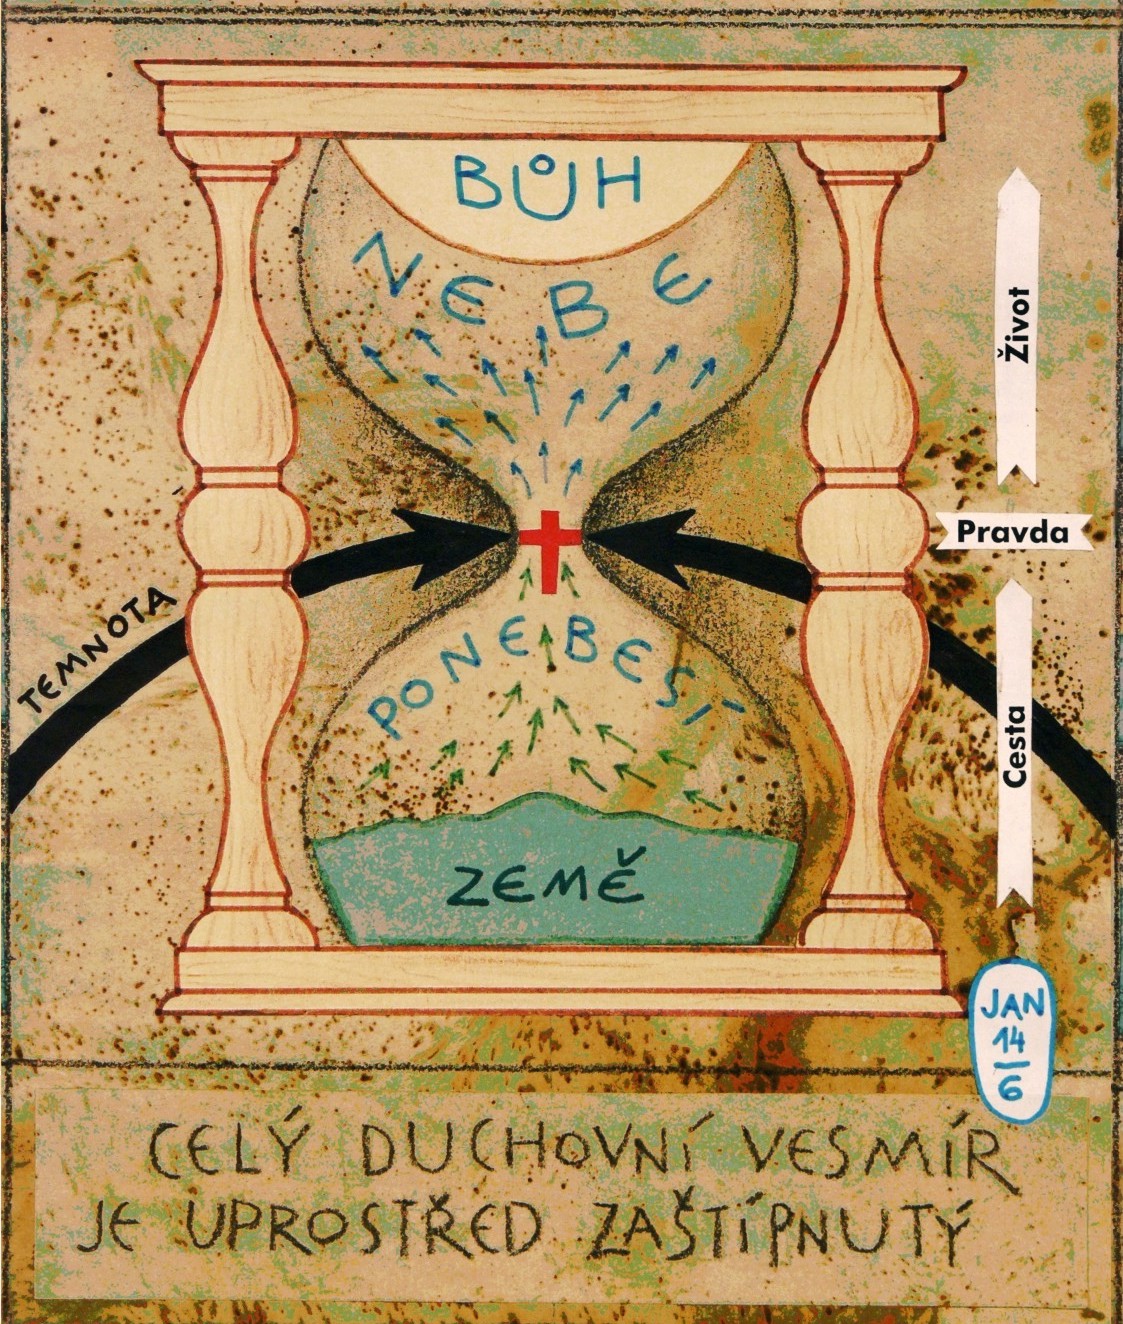 BŮH
NEBE
Život
Pravda
TEMNOTA
PONEBESÍ
Cesta
ZEMĚ
JAN
14
6
CELÝ DUCHOVNÍ VESMÍR
JE UPROSTŘED ZAŠTÍPNUTÝ